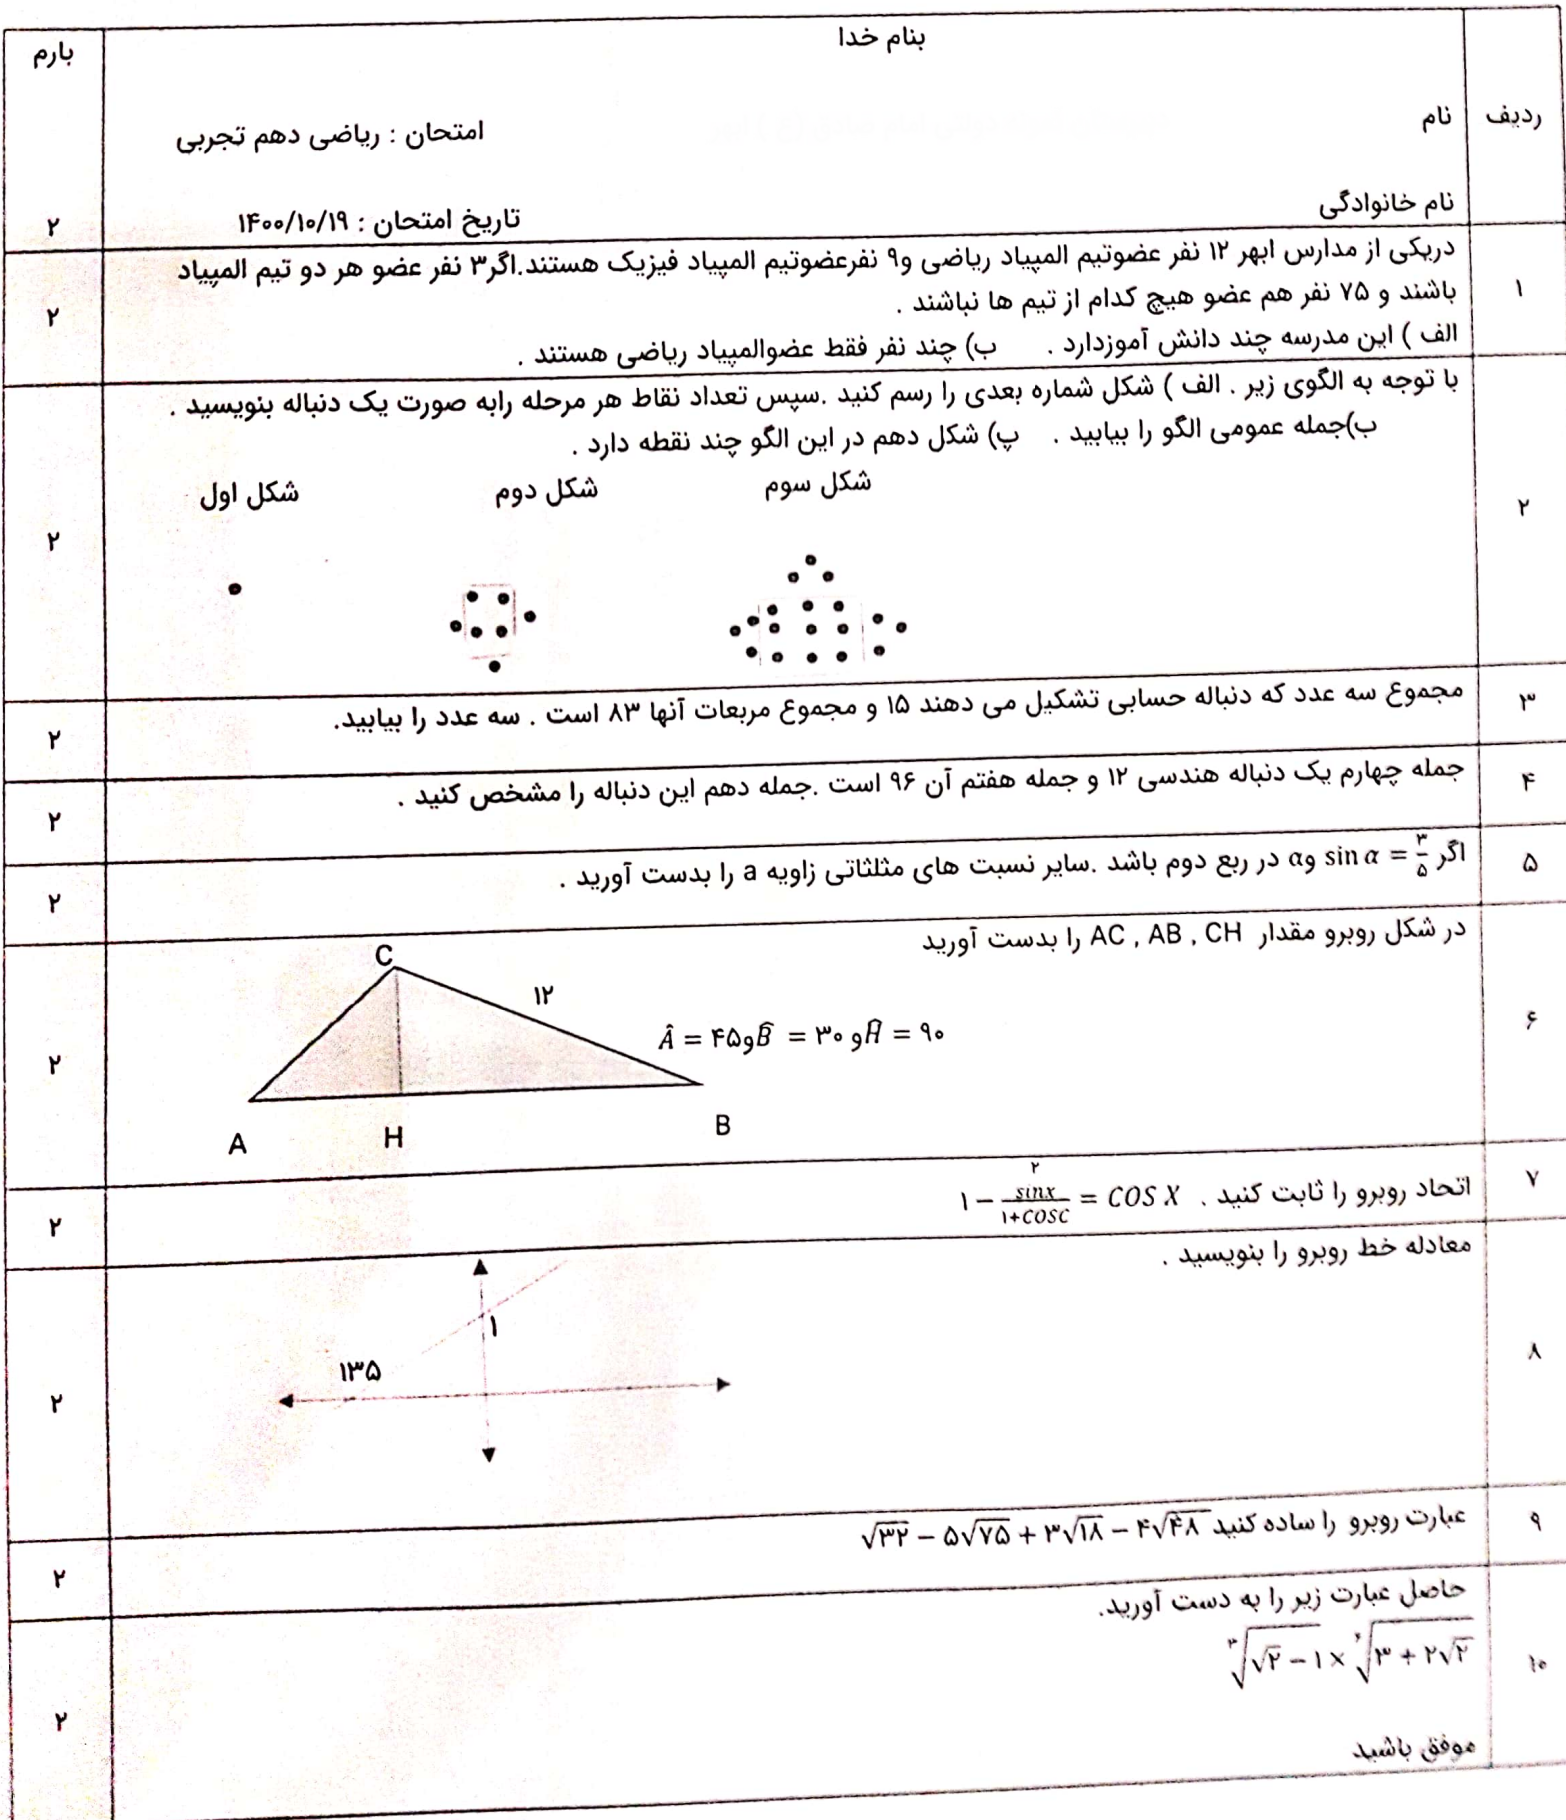 بنام خدا
بارم
ردیف
نام
امتحان : ریاضی دهم تجربی
نام خانوادگی
تاریخ امتحان : ۱۴۰۰/۱۰/۱۹
۲
۱
دریکی از مدارس ابهر ۱۲ نفر عضوتیم المپیاد ریاضی و۹ نفرعضوتیم المپیاد فیزیک هستند.اگر۳ نفر عضو هر دو تیم المپیاد
باشند و ۷۵ نفر هم عضو هیچ کدام از تیم ها نباشند .
الف ) این مدرسه چند دانش آموزدارد . ب) چند نفر فقط عضوالمپیاد ریاضی هستند .
۲
۲
با توجه به الگوی زیر . الف ) شکل شماره بعدی را رسم کنید .سپس تعداد نقاط هر مرحله رابه صورت یک دنباله بنویسید .
ب)جمله عمومی الگو را بیابید . پ) شکل دهم در این الگو چند نقطه دارد .
شکل سوم شکل دوم شکل اول
۲
۳
مجموع سه عدد که دنباله حسابی تشکیل می دهند ۱۵ و مجموع مربعات آنها ۸۳ است . سه عدد را بیابید.
۲
۴
جمله چهارم یک دنباله هندسی ۱۲ و جمله هفتم آن ۹۶ است .جمله دهم این دنباله را مشخص کنید .
۲
۵
اگر sin α = ۳/۵ وα در ربع دوم باشد .سایر نسبت های مثلثاتی زاویه a را بدست آورید .
۲
۶
در شکل روبرو مقدار AC , AB , CH را بدست آورید
C
۱۲
Â = ۴۵ و B̂ = ۳۰ و Ĥ = ۹۰
A H B
۲
۷
اتحاد روبرو را ثابت کنید . ۱ − sinx^۲/(۱+COSC) = COS X
۲
۸
معادله خط روبرو را بنویسید .
۱
۱۳۵
۲
۹
عبارت روبرو را ساده کنید √۳۲ − ۵√۷۵ + ۳√۱۸ − ۴√۴۸
۲
۱۰
حاصل عبارت زیر را به دست آورید.
√(√۲ − ۱) × √(۳ + ۲√۲)
۲
موفق باشید